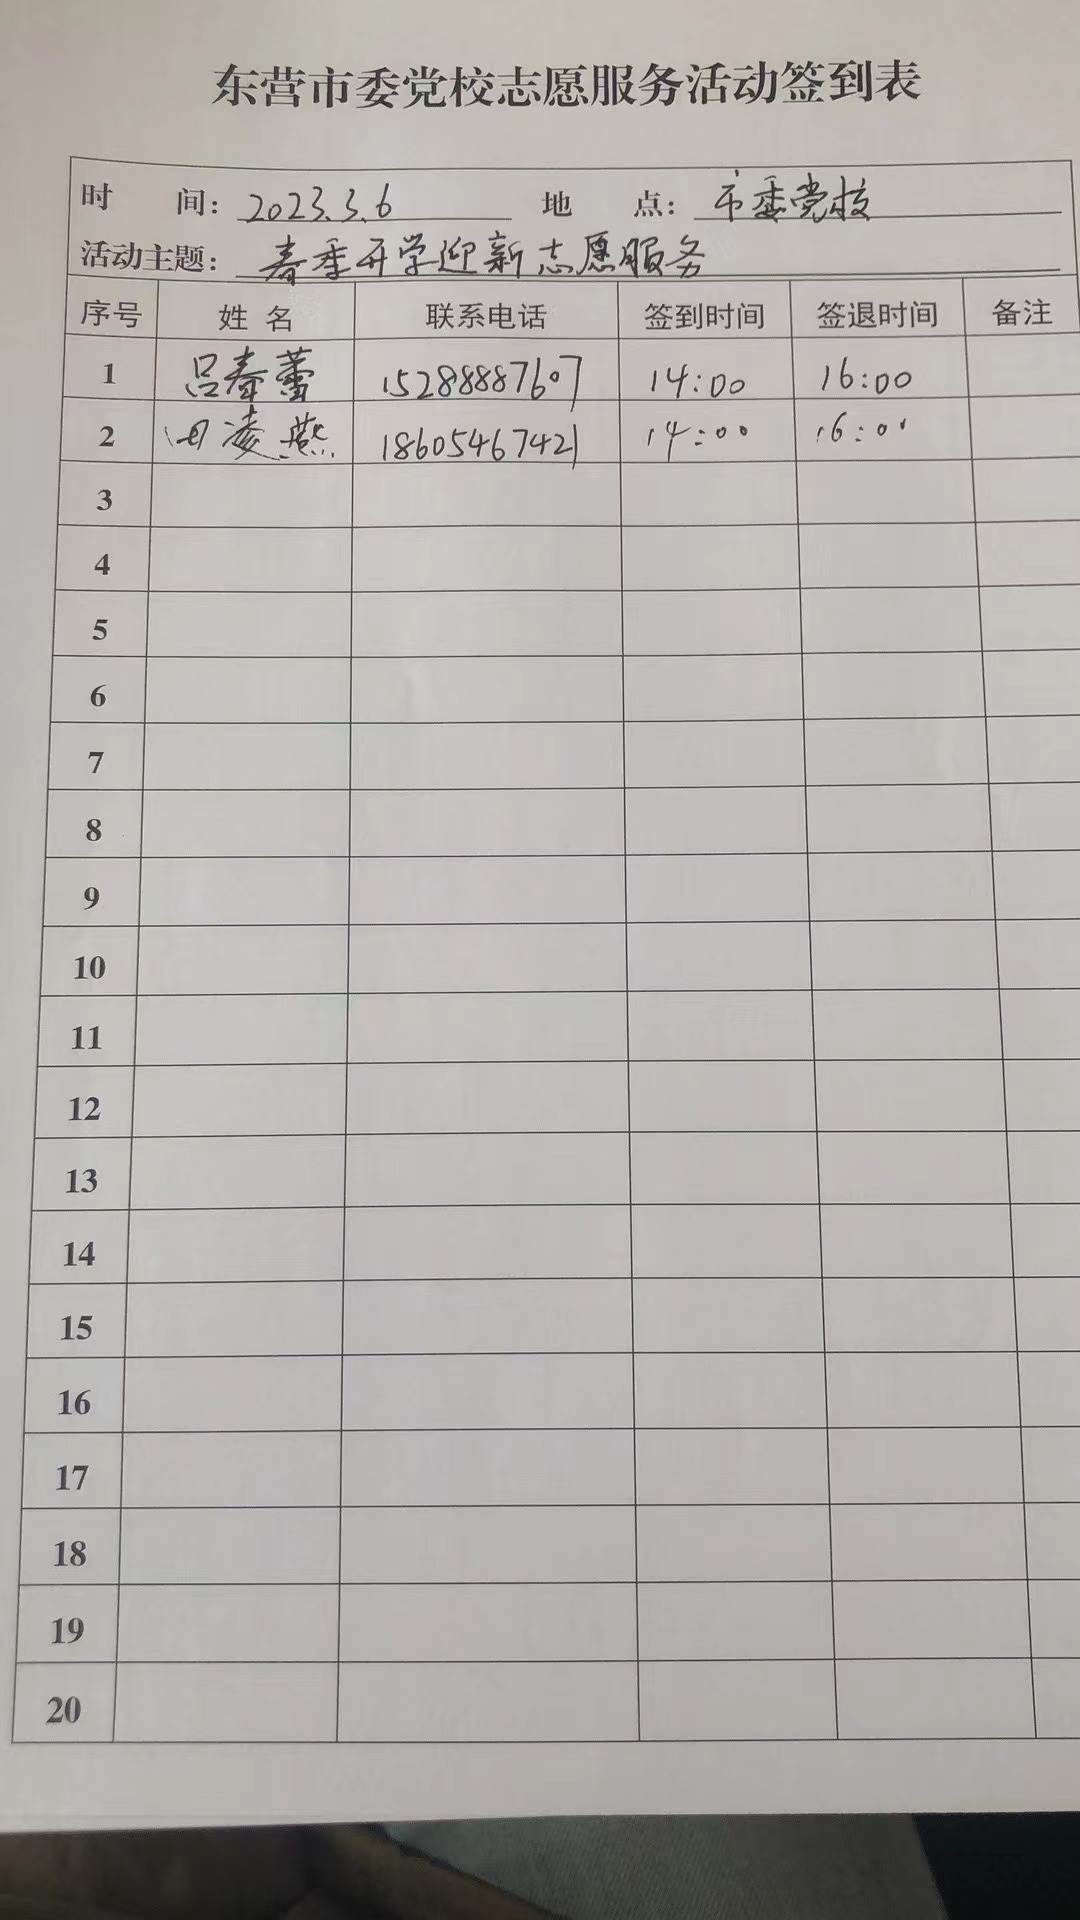 东营市委党校志愿服务活动签到表
时 间: 2023.3.6 地 点: 市委党校
活动主题: 春季开学迎新志愿服务
序号 姓名 联系电话 签到时间 签退时间 备注
1 吕春蕾 15288887607 14:00 16:00
2 田凌燕 18605467421 14:00 16:00
3
4
5
6
7
8
9
10
11
12
13
14
15
16
17
18
19
20